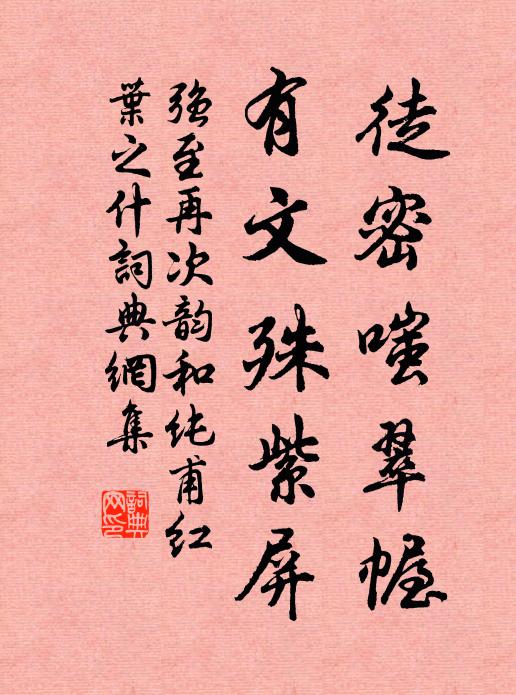 徒密嗤翠幄
有文殊紫屏
强至再次韵和纯甫红
葉之什詞典網集
詞典網印